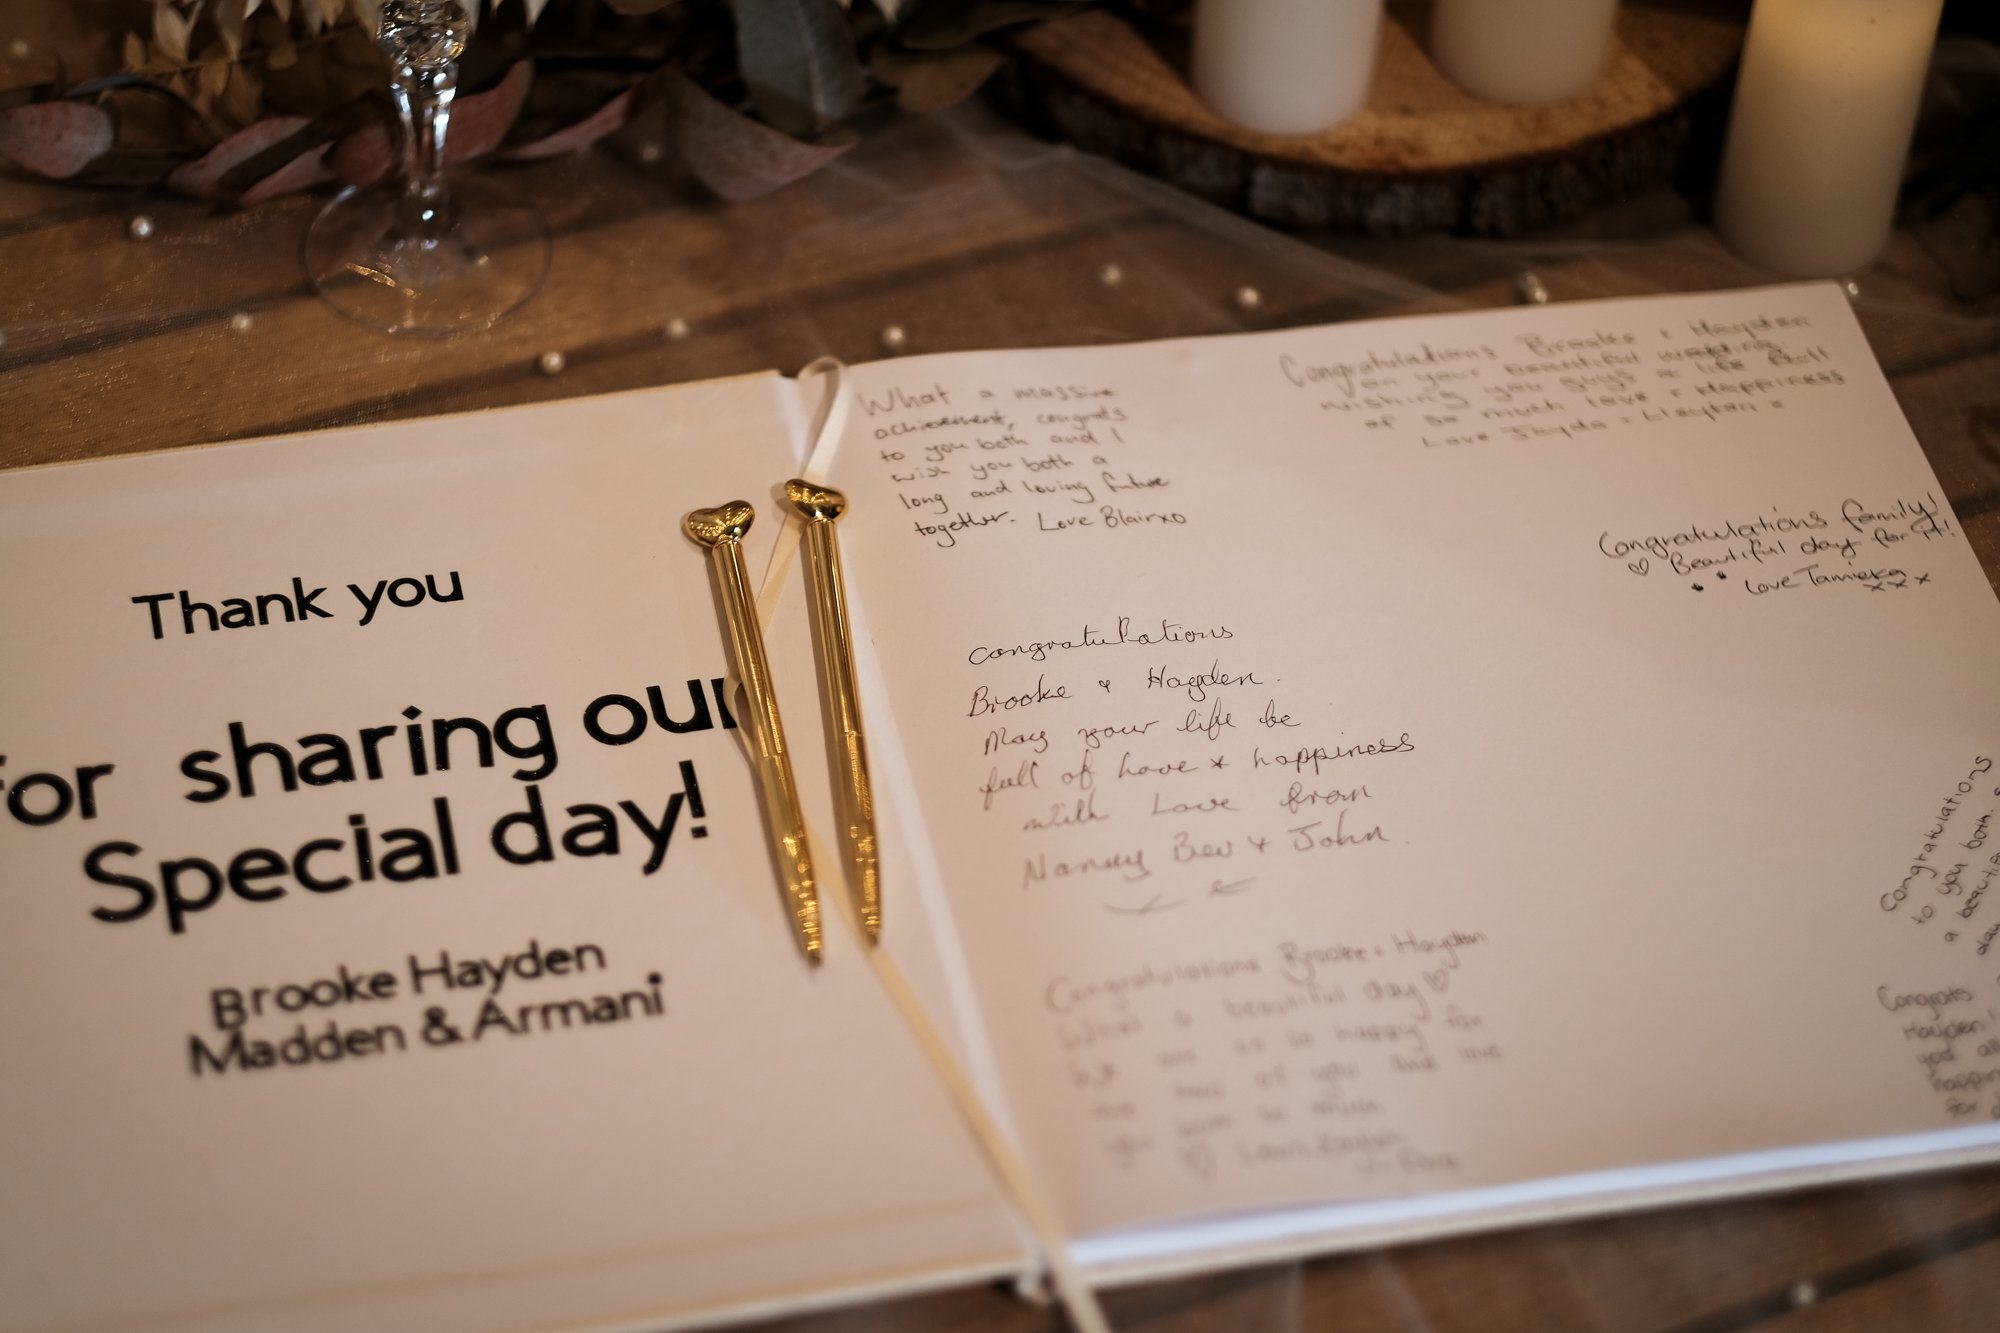 Thank you
for sharing our
Special day!
Brooke Hayden
Madden & Armani
What a massive
achievement, congrats
to you both and I
wish you both a
long and loving future
together. Love Blair xo
Congratulations Brooke + Hayden
on your beautiful wedding.
wishing you guys a life full
of so much love + Happiness
Love Jayda + Clayton
Congratulations family!
♡ Beautiful day for it!
Love Tamieka
x x x
congratulations
Brooke & Hayden.
May your life be
full of love & happiness
with Love from
Nanny Bev & John.
Congratulations Brooke + Hayden
What a beautiful day ♡
We are so so happy for
of you and love
you both so much
♡
Congratulations
to you both.
a
day
Congrats
Hayden!
you all
for